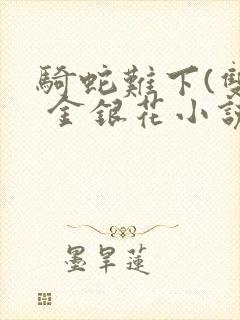 騎蛇難下(雙
金銀花小說
墨旱蓮